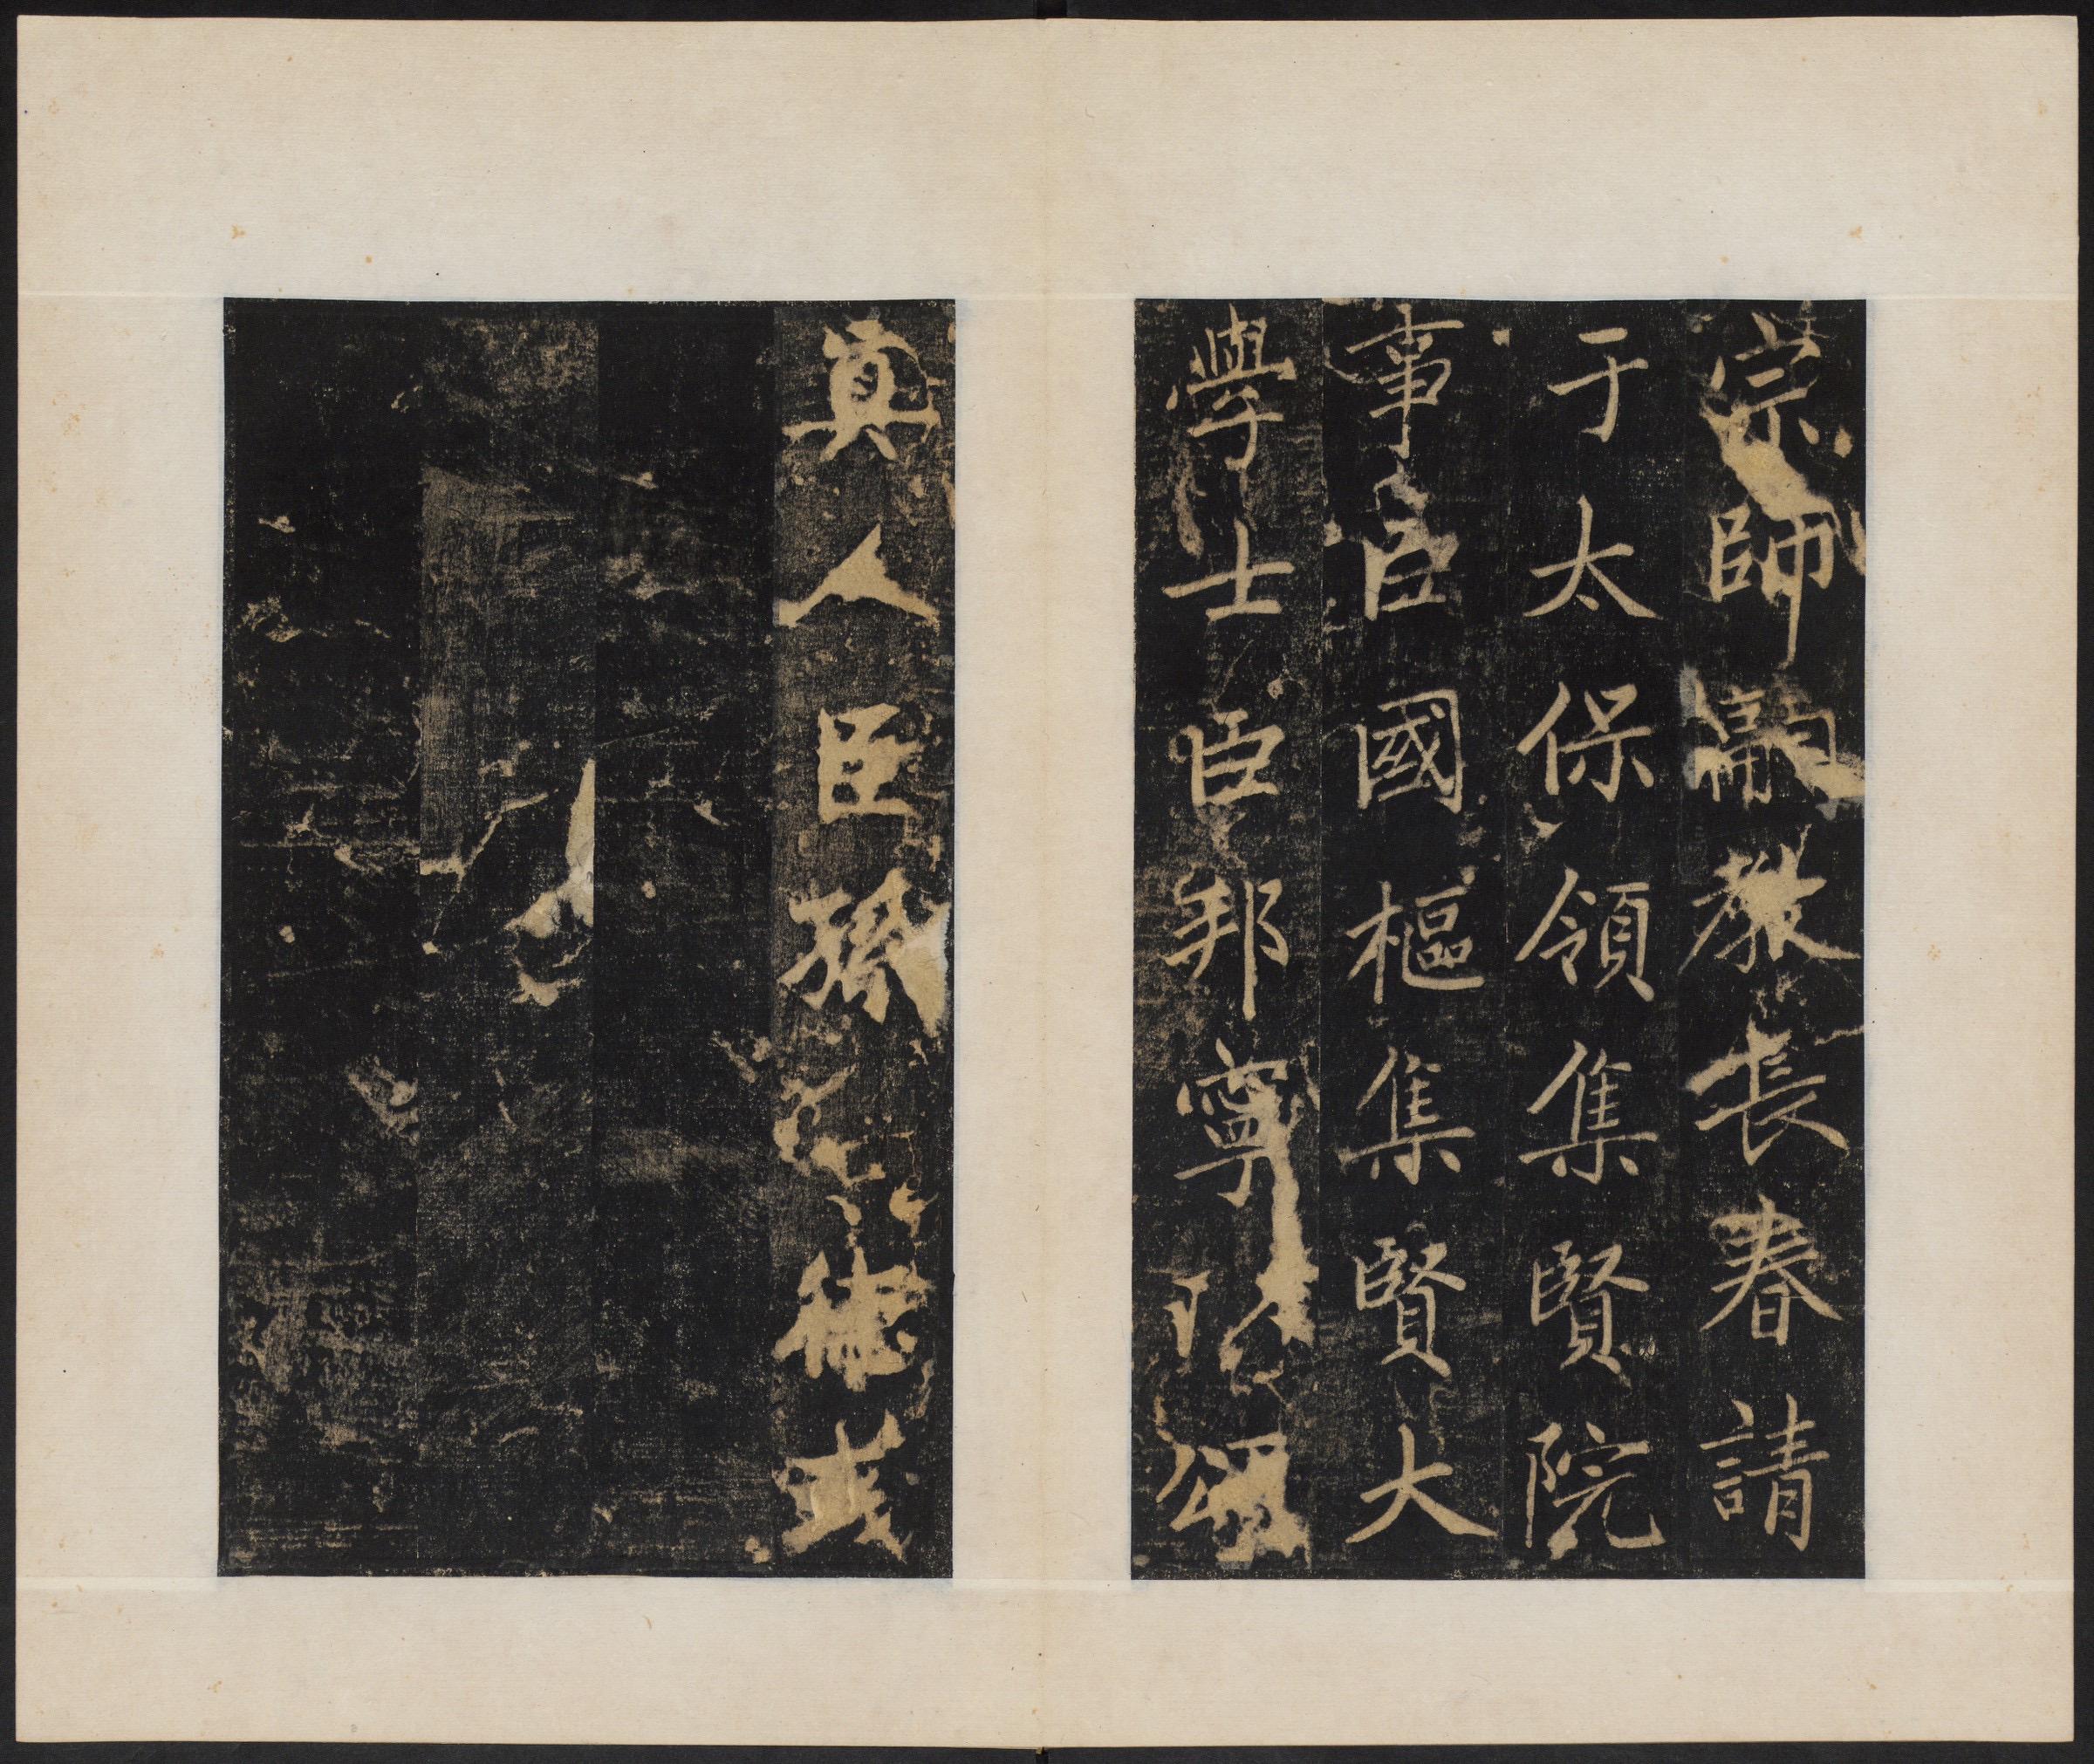 宗師嗣教長春請
于太保領集賢院
事臣國樞集賢大
學士臣邦寧以
真人臣孫德彧